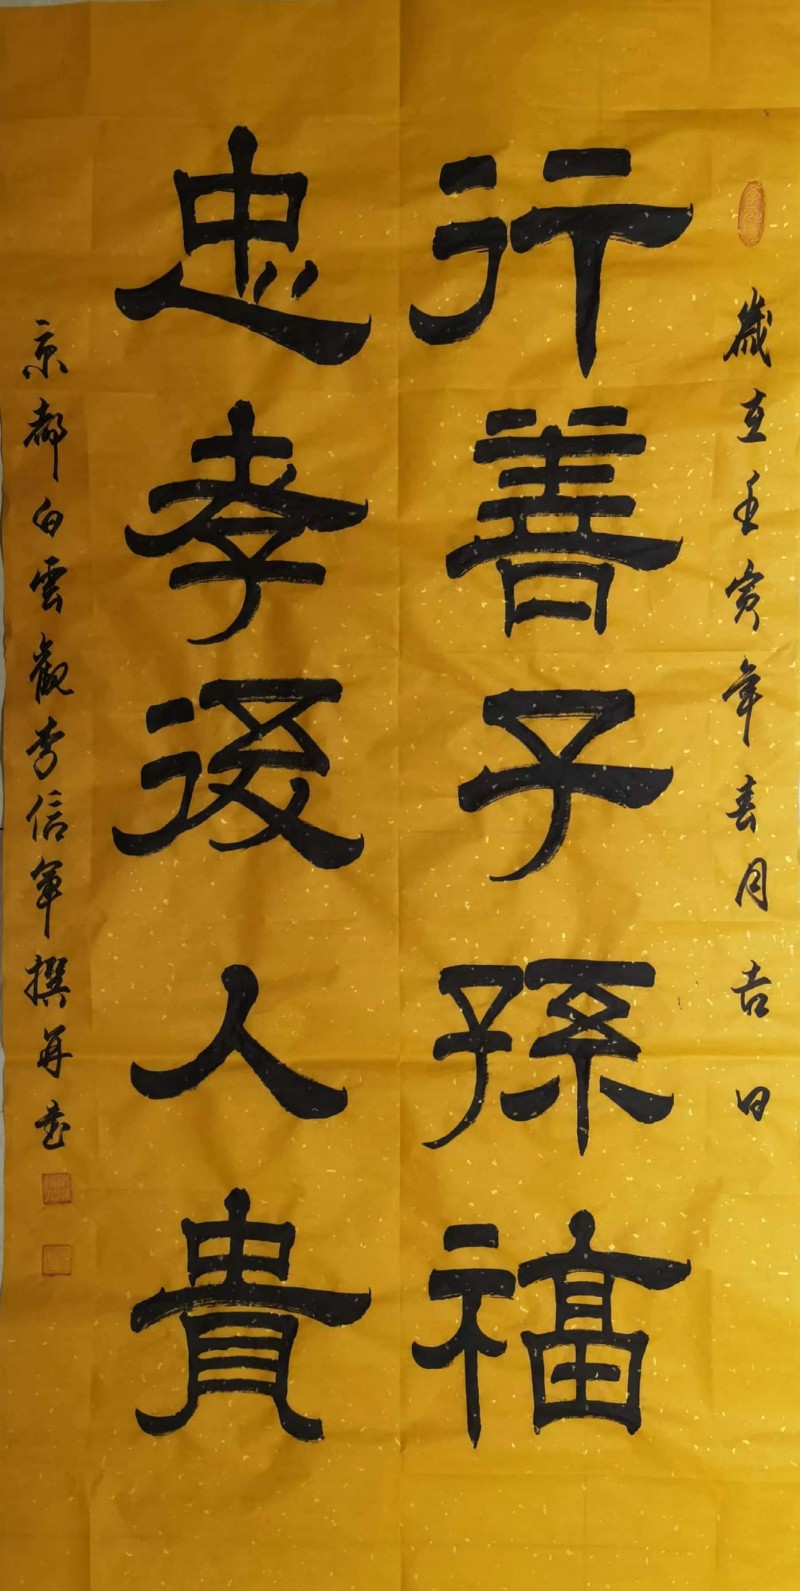 歲在壬寅年春月吉日
行善子孫福
忠孝後人貴
京都白雲觀李信軍撰并書